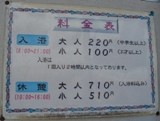 料金表
入浴 大人 220円 (中学生以上)
(10:00~21:00) 小人 100円
入浴は
1回人り2時間以内となっております。
休憩 大人 710円 (入浴料込み)
(10:00~16:00) 小人 510円